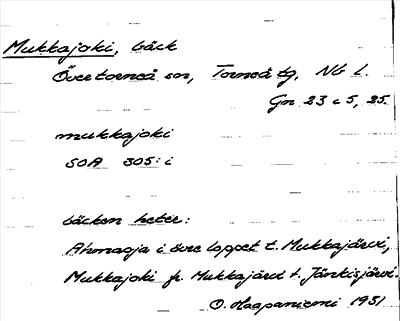 Mukkajoki, bäck
Övertorneå sn, Torneå tg, Nb l.
Gn 23 c 5, 25.
mukkajoki
SOA 305: i
bäcken heter:
Ahmaoja i övre loppet t. Mukkajärvi,
Mukkajoki fr. Mukkajärvi t. Jänkisjärvi.
O. Haapaniemi 1931